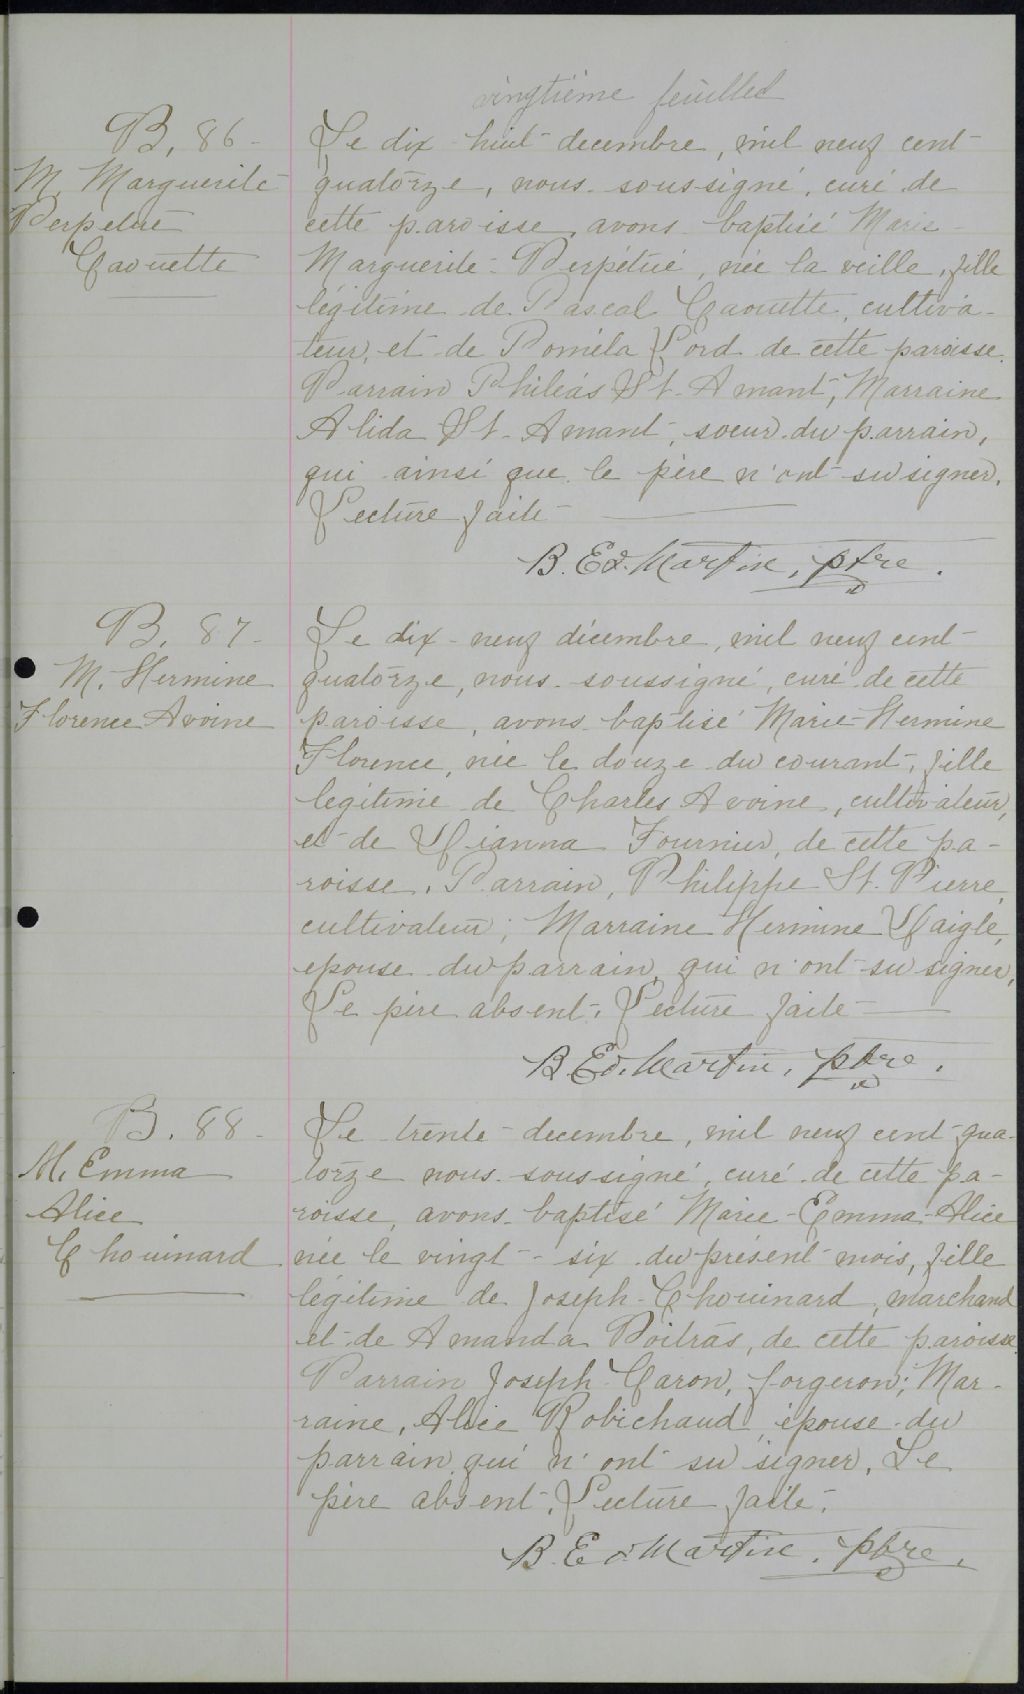 vingtième feuillet
B. 86 -
M. Marguerite
Perpetué
Caouette
Le dix-huit decembre, mil neuf cent
quatorze, nous soussigné, curé de
cette paroisse, avons baptisé Marie
Marguerite-Perpétué, née la veille, fille
légitime de Pascal Caouette, cultiva-
teur, et de Poméla Lord de cette paroisse.
Parrain Philéas St-Amant, Marraine
Alida St-Amant, soeur du parrain,
qui ainsi que le père n'ont su signer.
Lecture faite
B. Ed. Martin, ptre.
B. 87 -
M. Hermine
Florence Avoine
Le dix-neuf décembre, mil neuf cent
quatorze, nous soussigné, curé de cette
paroisse, avons baptisé Marie-Hermine
Florence, née le douze du courant, fille
legitime de Charles Avoine, cultivateur,
et de Dianna Fournier, de cette pa-
roisse. Parrain, Philippe St. Pierre,
cultivateur; Marraine Hermine Daigle,
epouse du parrain, qui n'ont su signer,
Le père absent. Lecture faite
B. Ed. Martin, ptre.
B. 88 -
M. Emma
Alice
Chouinard
Le trente decembre, mil neuf cent qua-
torze nous soussigné, curé de cette pa-
roisse, avons baptisé Marie-Emma-Alice
née le vingt-six du présent mois, fille
légitime de Joseph Chouinard, marchand
et de Amanda Poitras, de cette paroisse.
Parrain Joseph Caron, forgeron; Mar-
raine, Alice Robichaud, épouse du
parrain, qui n'ont su signer. Le
père absent. Lecture faite.
B. Ed. Martin, ptre.